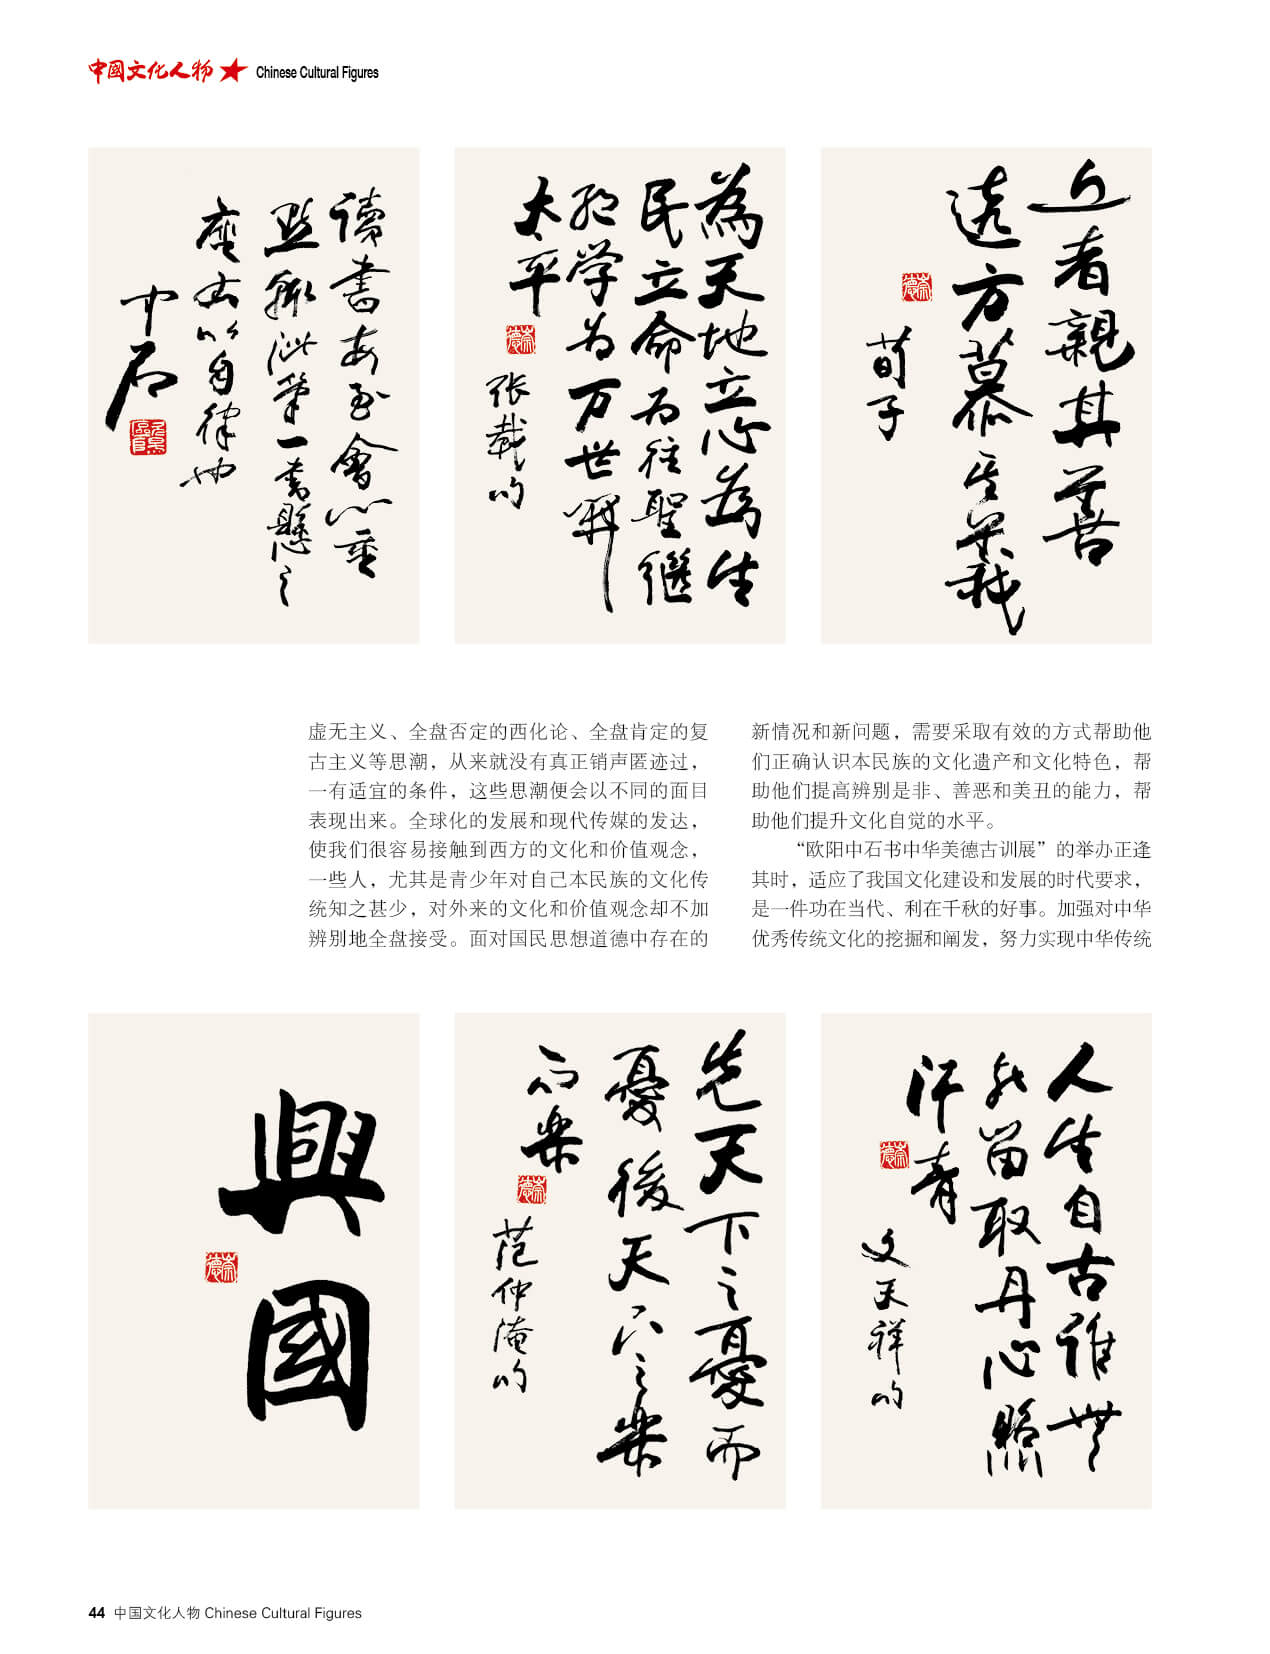 中國文化人物 Chinese Cultural Figures
讀書每至會心重
點輒泚筆一書懸之
座右以自律也
中石
為天地立心為生
民立命为往聖繼
绝学为万世開
太平
崇德
张載句
近者親其善
遠方慕其義
崇德
荀子
虚无主义、全盘否定的西化论、全盘肯定的复
古主义等思潮，从来就没有真正销声匿迹过，
一有适宜的条件，这些思潮便会以不同的面目
表现出来。全球化的发展和现代传媒的发达，
使我们很容易接触到西方的文化和价值观念，
一些人，尤其是青少年对自己本民族的文化传
统知之甚少，对外来的文化和价值观念却不加
辨别地全盘接受。面对国民思想道德中存在的
新情况和新问题，需要采取有效的方式帮助他
们正确认识本民族的文化遗产和文化特色，帮
助他们提高辨别是非、善恶和美丑的能力，帮
助他们提升文化自觉的水平。
“欧阳中石书中华美德古训展”的举办正逢
其时，适应了我国文化建设和发展的时代要求，
是一件功在当代、利在千秋的好事。加强对中华
优秀传统文化的挖掘和阐发，努力实现中华传统
興國
崇德
先天下之憂而
憂後天下之樂
而樂
崇德
范仲淹句
人生自古誰無
死留取丹心照
汗青
崇德
文天祥句
44 中国文化人物 Chinese Cultural Figures